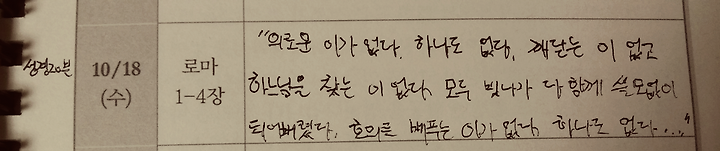 "의로운 이가 없다. 하나도 없다. 깨닫는 이 없고
성경20분 10/18 로마 하느님을 찾는 이 없다. 모두 빗나가 다 함께 쓸모없이
(수) 1-4장 되어버렸다. 호의를 베푸는 이가 없다. 하나도 없다..."